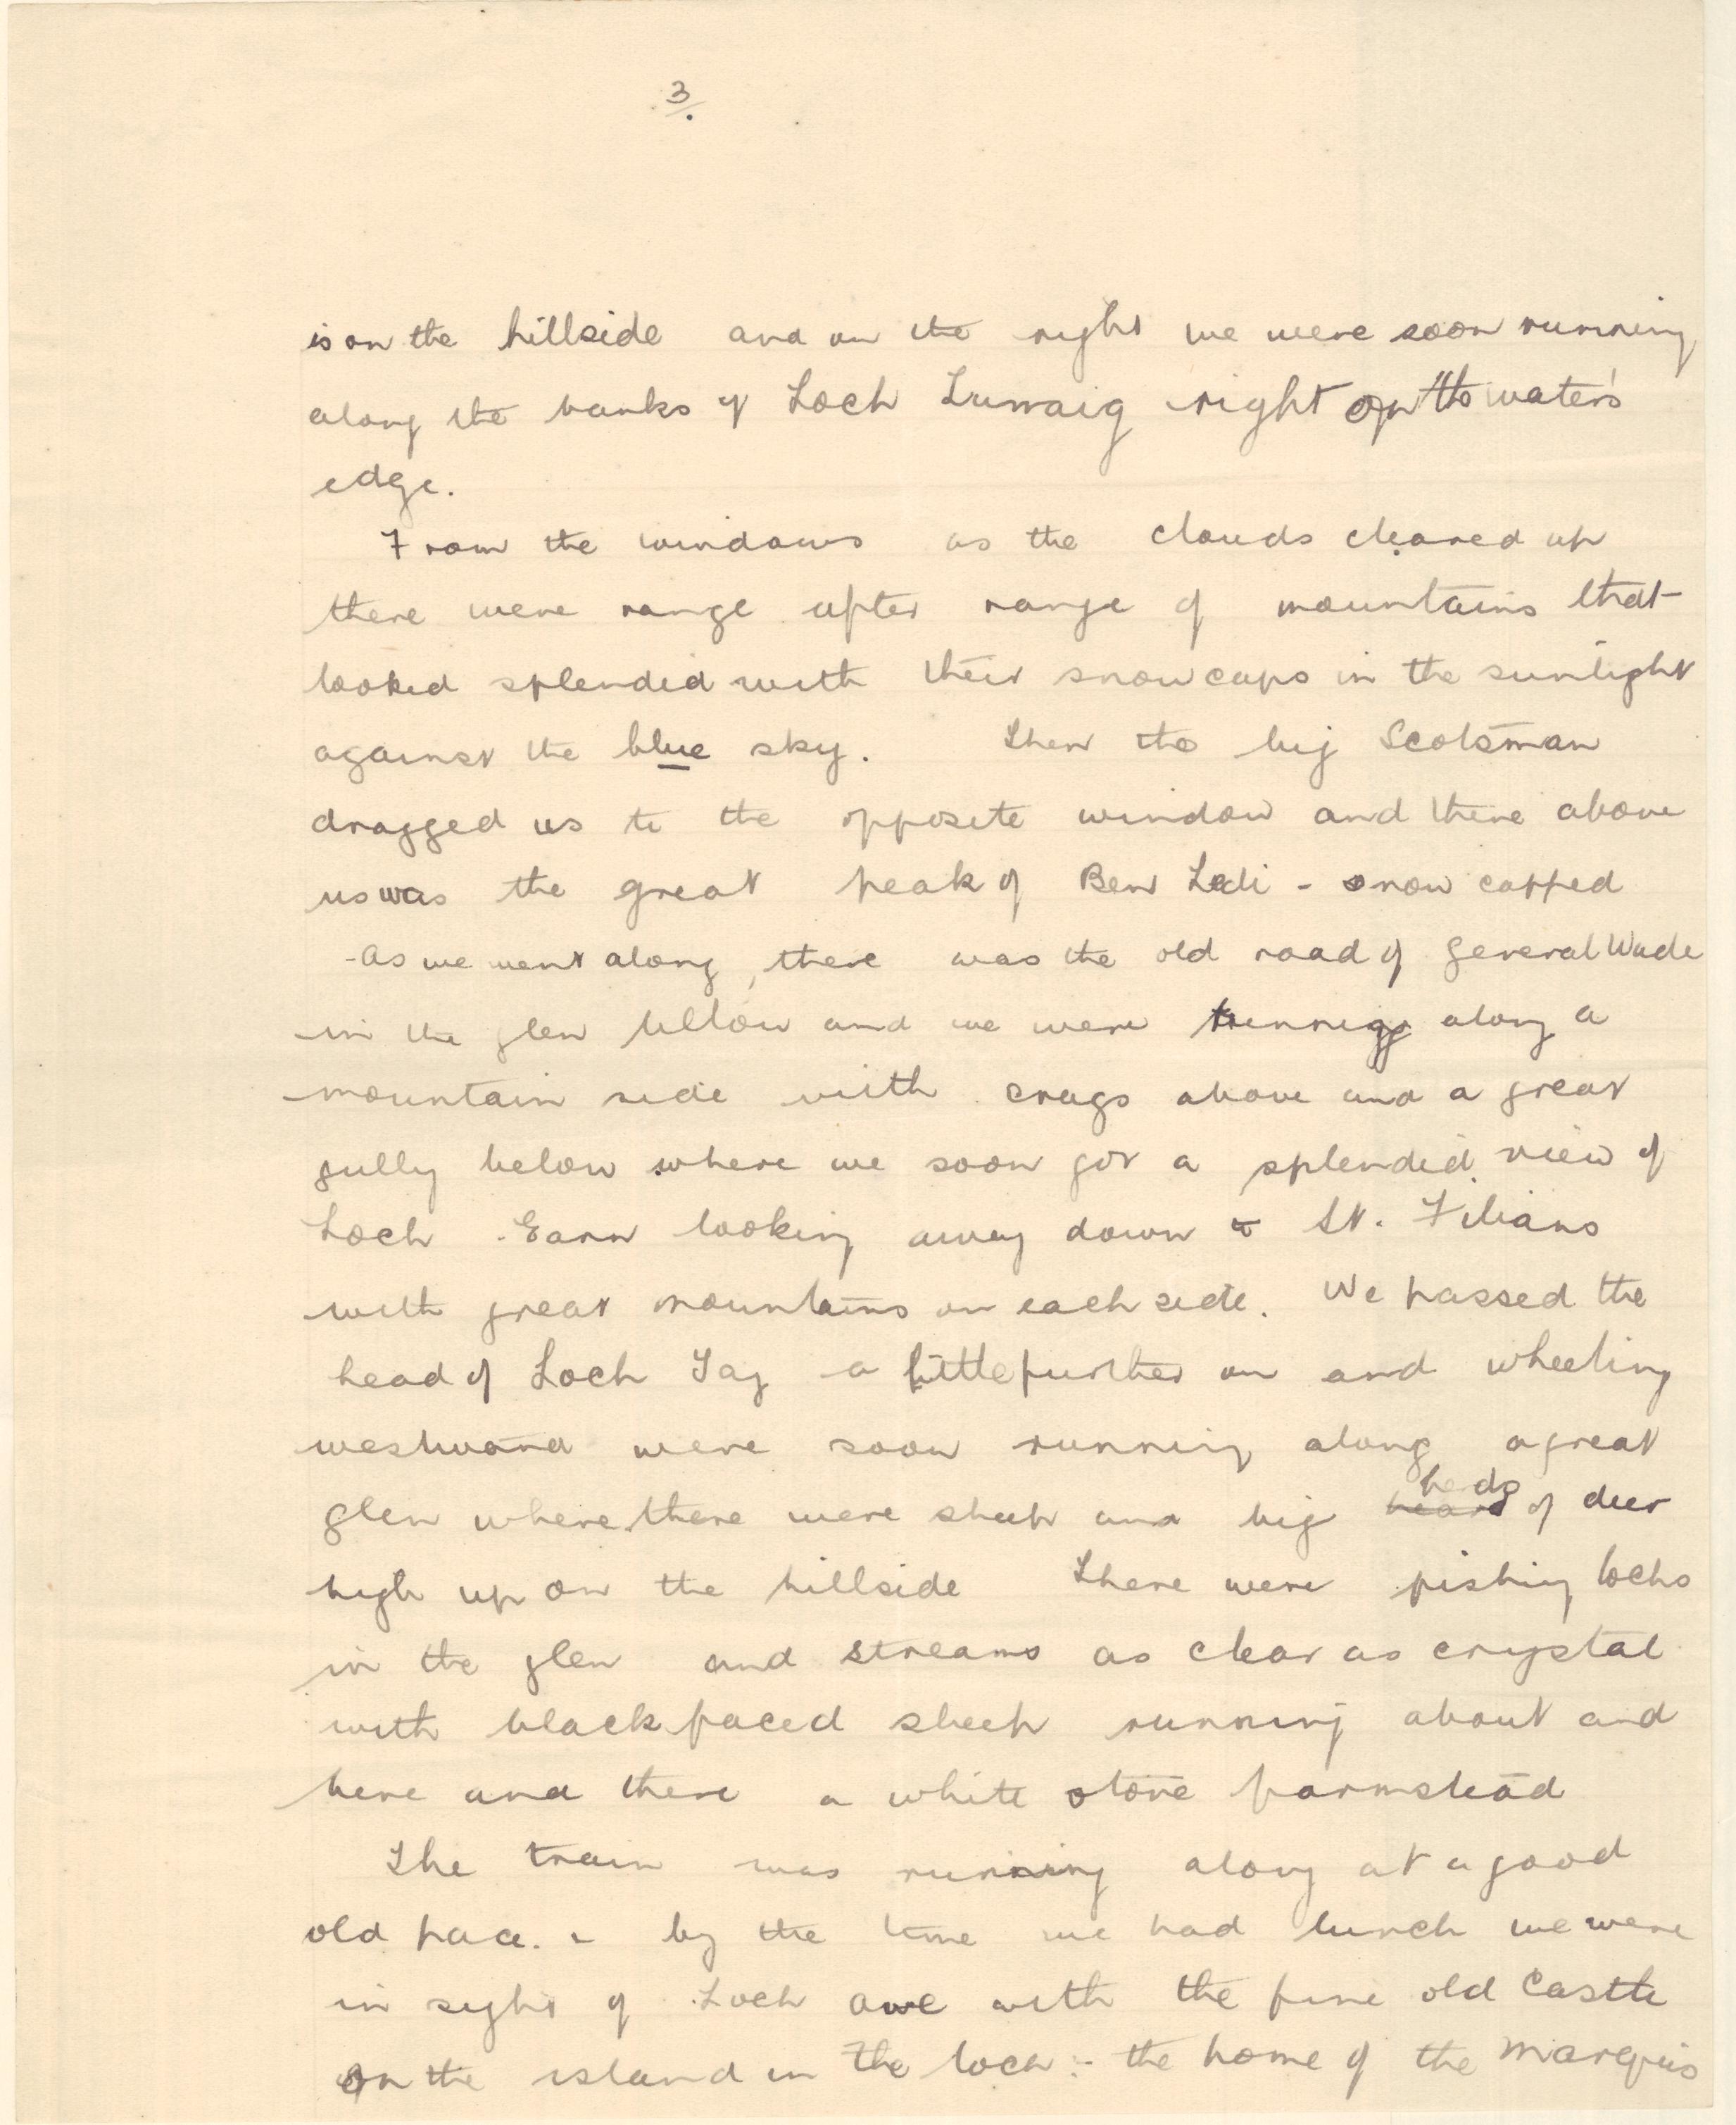 3.
is on the hillside and on the right we were soon running
along the banks of Loch Lunaig right on the water's
edge.
From the windows as the clouds cleared up
there were range after range of mountains that
looked splendid with their snow caps in the sunlight
against the blue sky. Then the big Scotsman
dragged us to the opposite window and there above
us was the great peak of Ben Ledi - snow capped
- As we went along, there was the old road of General Wade
in the glen below and we were running along a
mountain side with crags above and a great
gully below where we soon got a splendid view of
Loch Earn looking away down to St. Filians
with great mountains on each side. We passed the
head of Loch Tay a little further on and wheeling
westward were soon running along a great
glen where there were sheep and big herds of deer
high up on the hillside There were fishing lochs
in the glen and streams as clear as crystal
with black faced sheep running about and
here and there a white stone farmstead
The train was running along at a good
old pace. - by the time we had lunch we were
in sight of Loch Awe with the fine old Castle
on the island in the loch :- the home of the Marquis